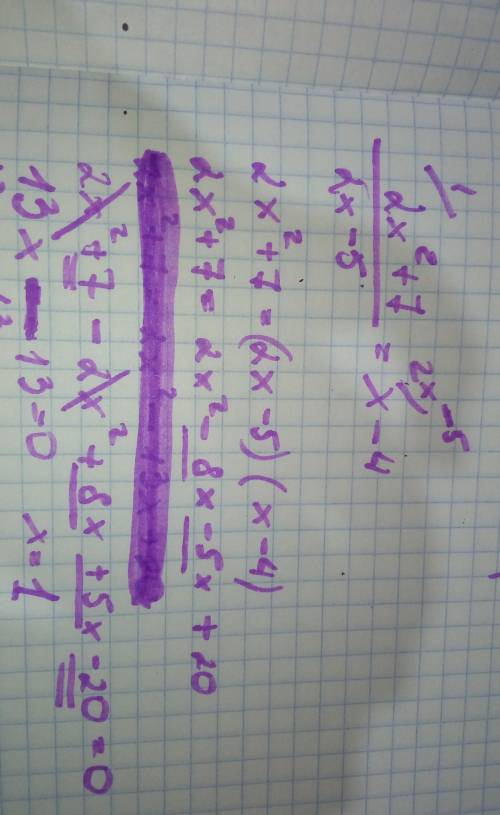 1/
(2x²+7)/(2x-5) = x-4 /2x-5
2x²+7=(2x-5)(x-4)
2x²+7= 2x²-8x-5x+20
2x²+7-2x²+8x+5x-20=0
13x-13=0 x=1